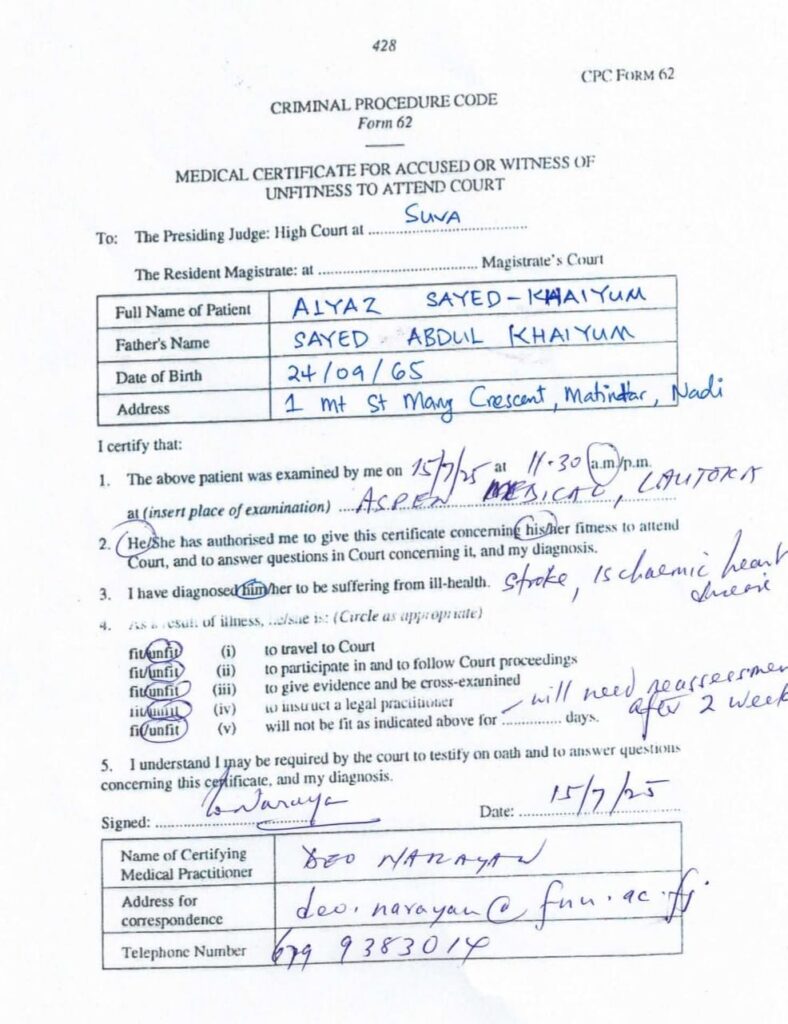 428
CPC FORM 62
CRIMINAL PROCEDURE CODE
Form 62
MEDICAL CERTIFICATE FOR ACCUSED OR WITNESS OF
UNFITNESS TO ATTEND COURT
To: The Presiding Judge: High Court at SUVA
The Resident Magistrate: at .................... Magistrate's Court
Full Name of Patient AIYAZ SAYED-KHAIYUM
Father's Name SAYED ABDUL KHAIYUM
Date of Birth 24/09/65
Address 1 mt St Mary Crescent, Matintar, Nadi
I certify that:
1. The above patient was examined by me on 15/7/25 at 11.30 a.m./p.m.
at (insert place of examination) ASPEN MEDICAL, LAUTOKA
2. He/She has authorised me to give this certificate concerning his/her fitness to attend
Court, and to answer questions in Court concerning it, and my diagnosis.
3. I have diagnosed him/her to be suffering from ill-health. stroke, Ischaemic heart
disease
4. As a result of illness, he/she is: (Circle as appropriate)
fit/unfit (i) to travel to Court
fit/unfit (ii) to participate in and to follow Court proceedings
fit/unfit (iii) to give evidence and be cross-examined
fit/unfit (iv) to instruct a legal practitioner
fit/unfit (v) will not be fit as indicated above for ............ days.
- will need reassessmen
after 2 week
5. I understand I may be required by the court to testify on oath and to answer questions
concerning this certificate, and my diagnosis.
Signed: Narayan
Date: 15/7/25
Name of Certifying
Medical Practitioner DEO NARAYAN
Address for
correspondence deo.narayan@fnu.ac.fj
Telephone Number 679 9383014